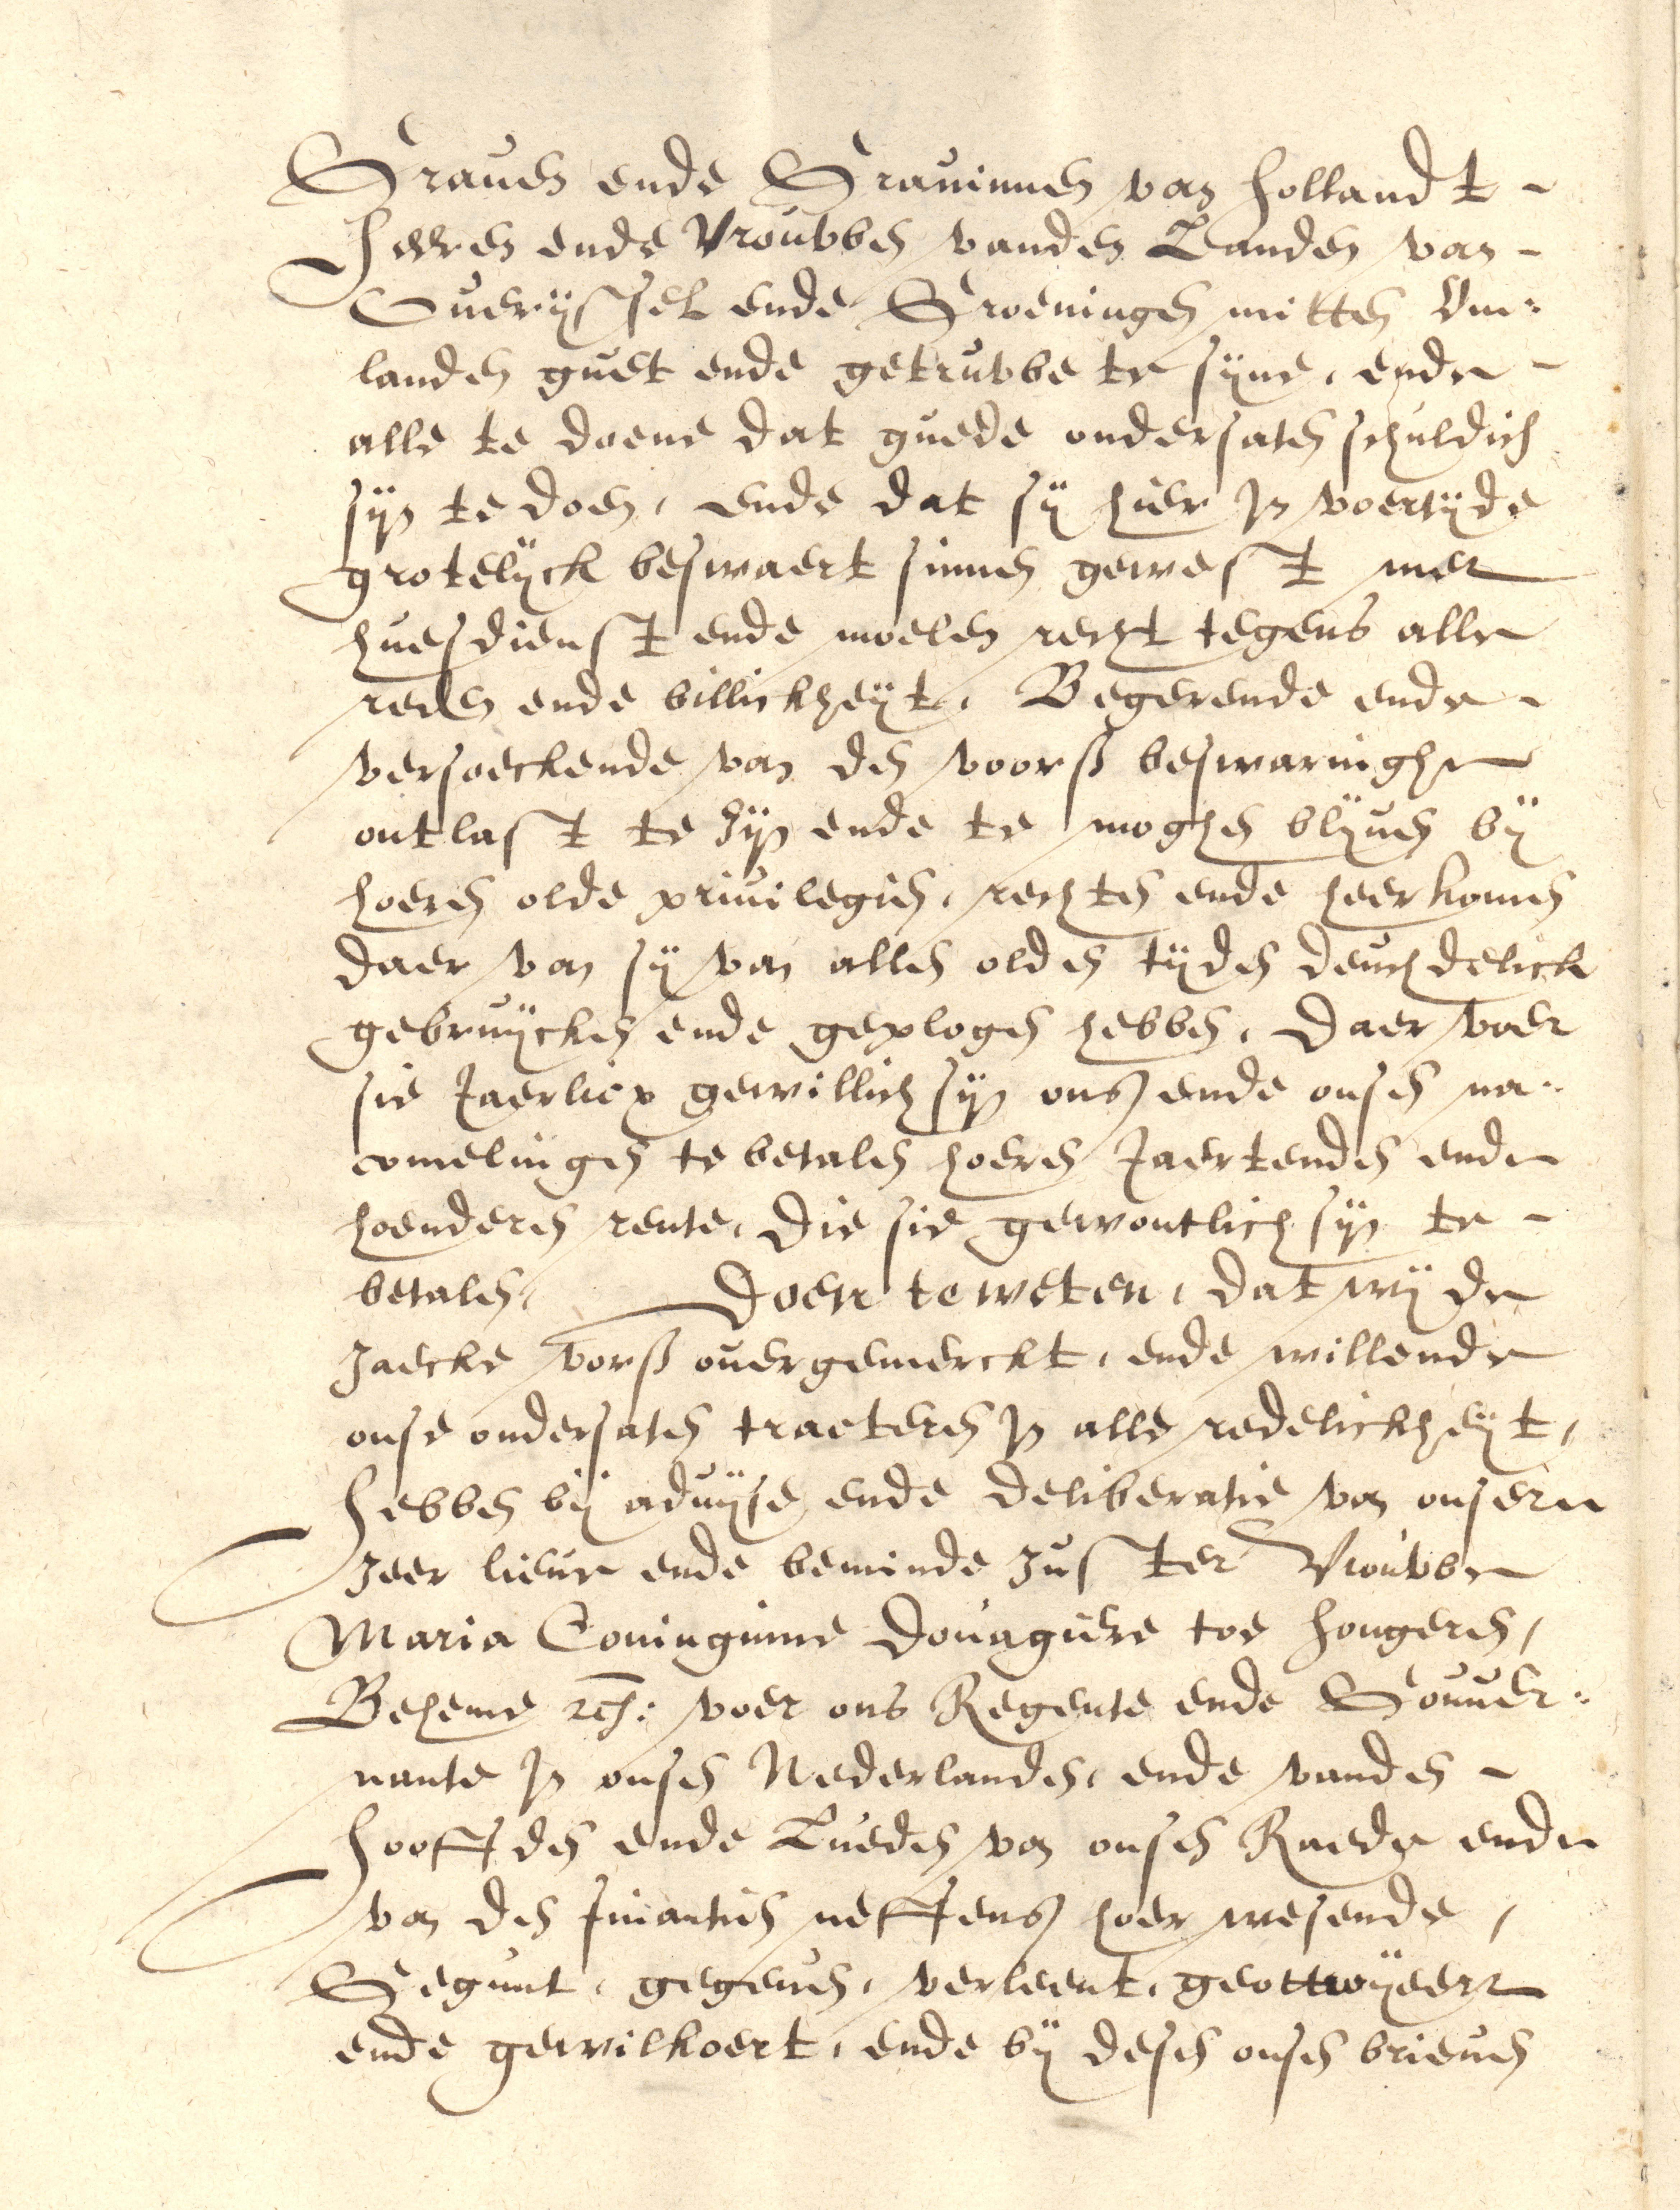 Grauen ende Grauinnen van Hollandt -
Heren ende Vrouwen vanden Landen van -
Ouerijssel ende Groeningen mitten Om:
landen guet ende getruwe te sijne, ende -
alle te doene dat guede ondersaten schuldich
sijn te doen, ende dat sij hier in voertijde
grotelijck beswaert sinnen gewest met
huesdienst ende moelen recht tegens alle
reden ende billickheijt, Begerende ende -
versoeckende van den voorß beswaringhe
ontlast te zijn ende te moghen blijuen bij
hoeren olde priuilegien, rechten ende heerkomen
daer van sij van allen olden tijden deuchdelick
gebruijcken ende geplogen hebben, Daer voer
sie Jaerlicx gewillich sijn ons ende onsen na:
comelingen te betalen hoeren Jaertenden ende
hoenderen rente, die sie gewontlich sijn te -
betalen, Doen te weten, dat wij de
zaecke vorß ouergemerckt, ende willende
onse ondersaten tracteren in alle redelickheijt,
Hebben bij aduijse ende deliberatie van onsere
zeer lieue ende beminde zuster Vrouwe
Maria Coninginne Douagiere toe Hongeren,
Beheme etc: voer ons Regente ende Gouuer:
nante in onsen Nederlanden, ende vanden -
hooffden ende Lueden van onsen Raede ende
van den finantien neffens hoer wesende,
Gegunt, gegeuen, verleent, geottroijeert
ende gewilkoert, ende bij desen onsen brieuen